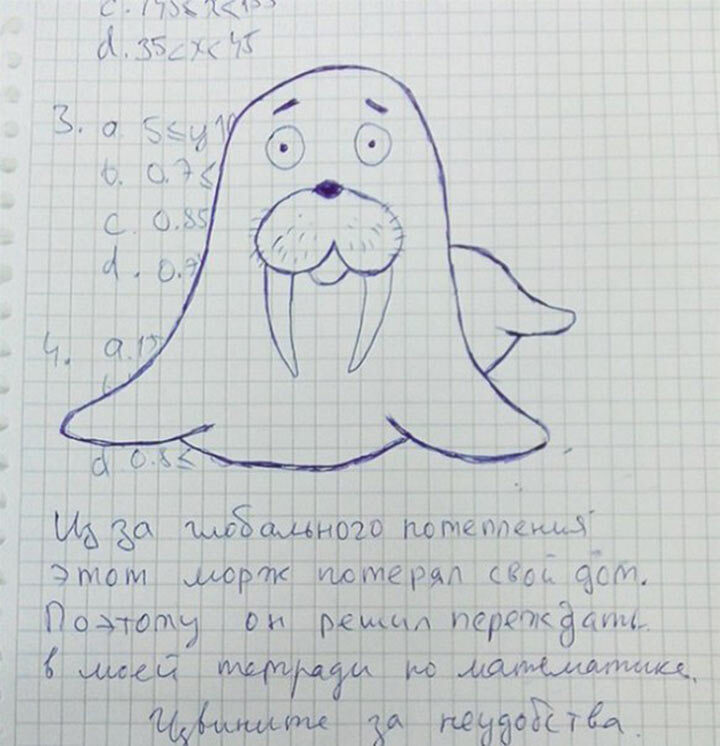 d. 35<x<45
3. a 5≤y
b. 0.7≤
c. 0.85
d. 0.7
4. a.
d 0.8≤
Из за глобального потепления
этот морж потерял свой дом.
Поэтому он решил переждать
в моей тетради по математике.
Извините за неудобства.